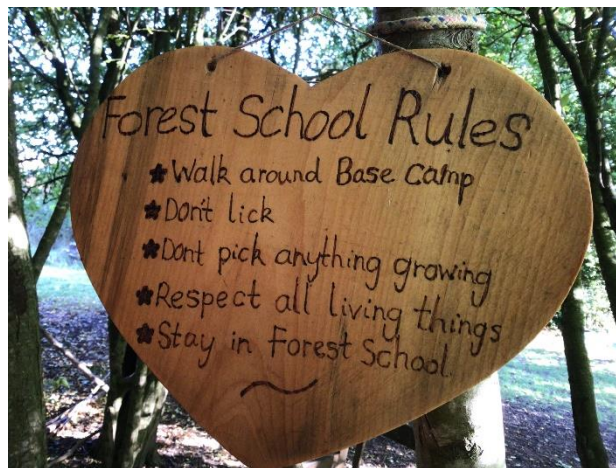 Forest School Rules
Walk around Base Camp
Don't lick
Dont pick anything growing
Respect all living things
Stay in Forest School